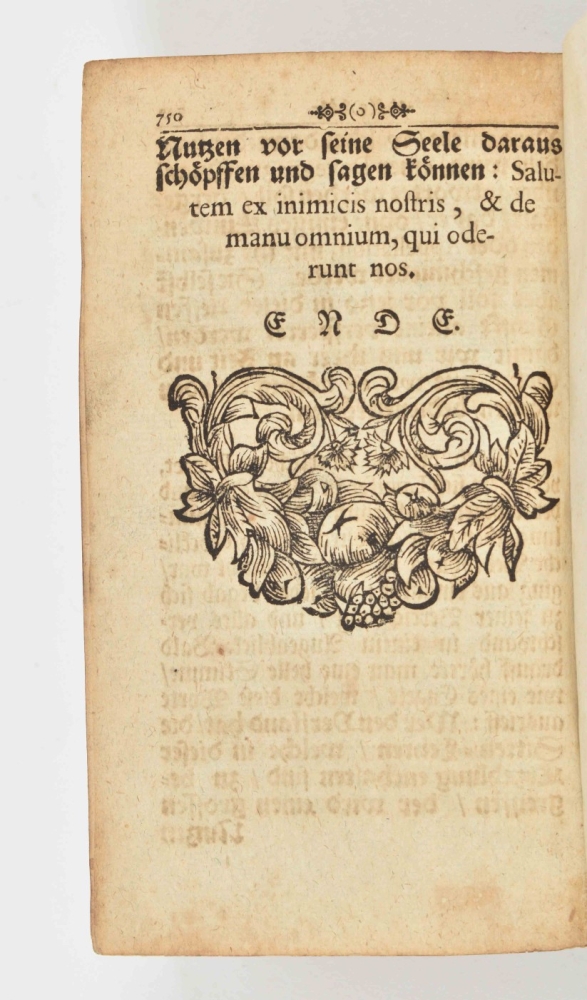 750 (o)
Nutzen vor seine Seele daraus
schöpffen und sagen können: Salu-
tem ex inimicis nostris, & de
manu omnium, qui ode-
runt nos.
E N D E.